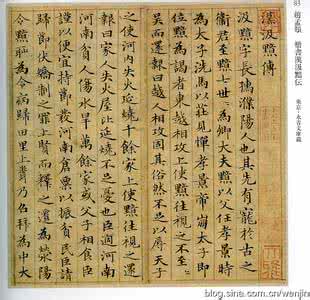 83 趙孟頫 楷書漢汲黯伝
東京・永青文庫蔵
漢汲黯傳
汲黯字長孺濮陽人也其先有寵於古之
衛君至黯七世世為卿大夫黯以父任孝景時
為太子洗馬以莊見憚孝景帝崩太子即
位黯為謁者東越相攻上使黯往視之不至至
吳而還報曰越人相攻固其俗然不足以辱天子
之使河內失火延燒千餘家上使黯往視之還
報曰家人失火屋比延燒不足憂也臣過河南
河南貧人傷水旱萬餘家或父子相食臣
謹以便宜持節發河南倉粟以振貧民臣請
歸節伏矯制之罪上賢而釋之遷為滎陽
令黯恥為令病歸田里上聞乃召拜為中大
blog.sina.com.cn/wenjin